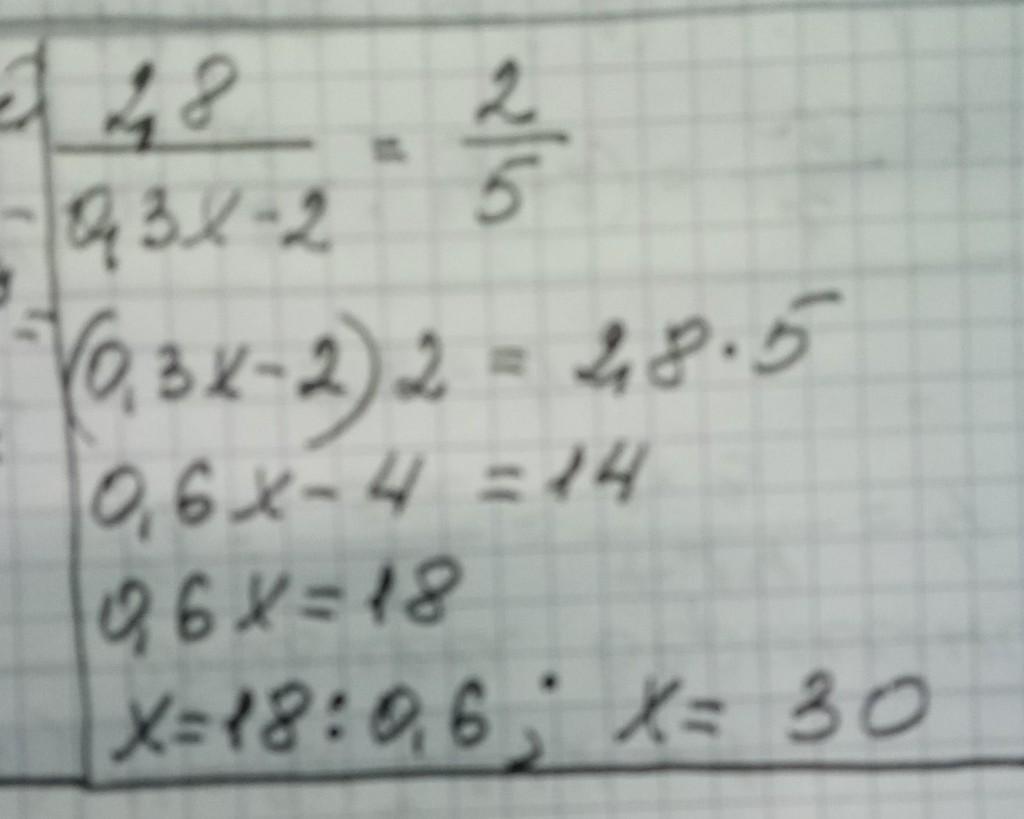 2,8 / 0,3x-2 = 2 / 5
(0,3x-2)2 = 2,8·5
0,6x-4 =14
0,6x=18
x=18:0,6; x= 30